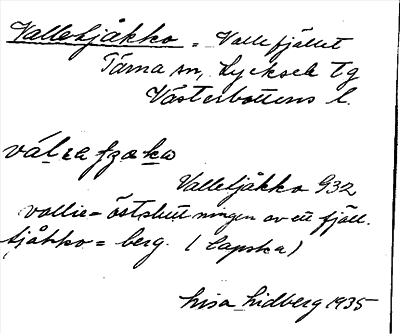 Valletjåkko = Vallefjället
Tärna sn, Lycksele tg
Västerbottens l.
Valletjåkko G32
vallie = östsluttningen av ett fjäll.
tjåkko = berg. (lapska)
Lisa Lidberg 1935